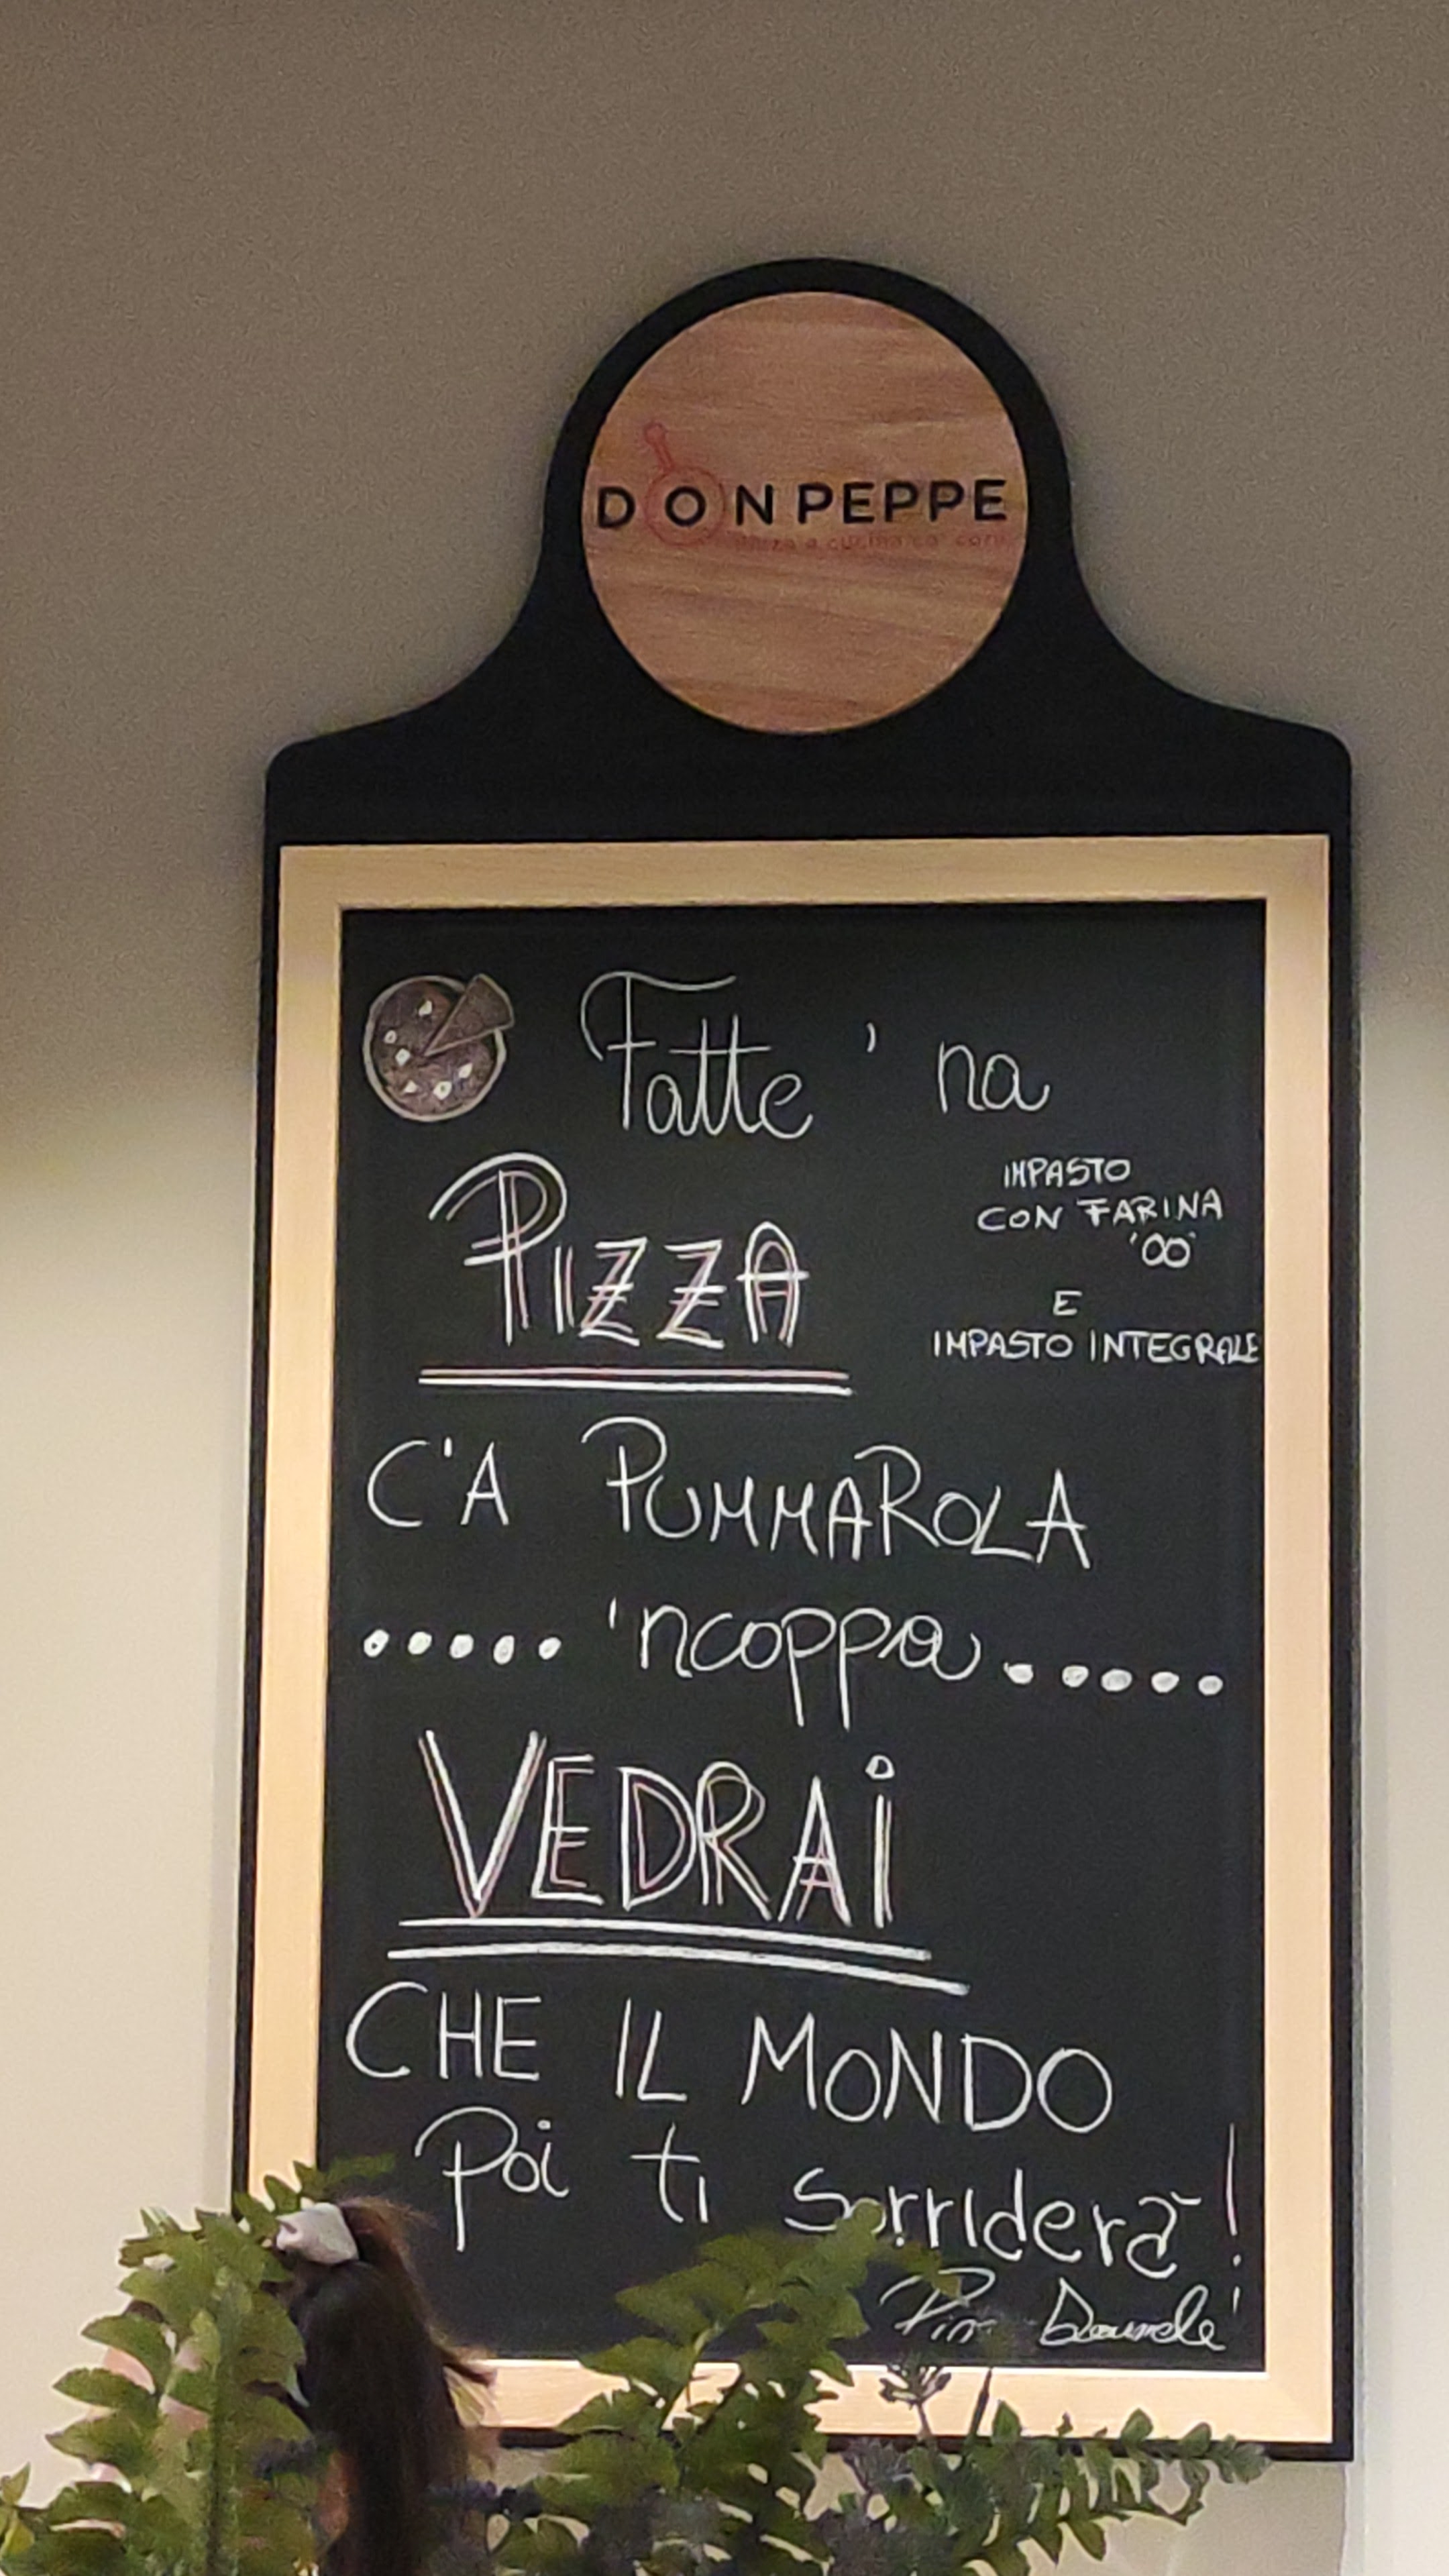 DON PEPPE
Fatte 'na
PIZZA
IMPASTO
CON FARINA
'00'
E
IMPASTO INTEGRALE
C'A PUMMAROLA
..... 'ncoppa .....
VEDRAI
CHE IL MONDO
Poi ti sorriderà!
Pin Daniele